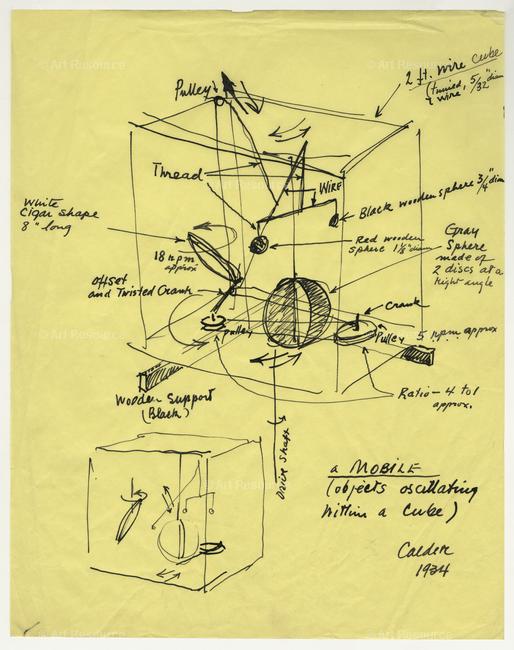 2 ft. wire cube
(tinned, 5/32" diam
wire
Pulley
Thread
WIRE
Black wooden sphere 3/4" diam
White
Cigar shape
8" long
18 rpm
approx
Red wooden
sphere 1 1/8" diam
Gray
Sphere
made of
2 discs at a
right angle
offset
and Twisted Crank
Crank
pulley
Pulley 5 rpm approx
Wooden Support
(Black)
Ratio - 4 to 1
approx.
Drive Shaft
a MOBILE
(objects oscillating
within a cube)
Calder
1934
© Art Resource